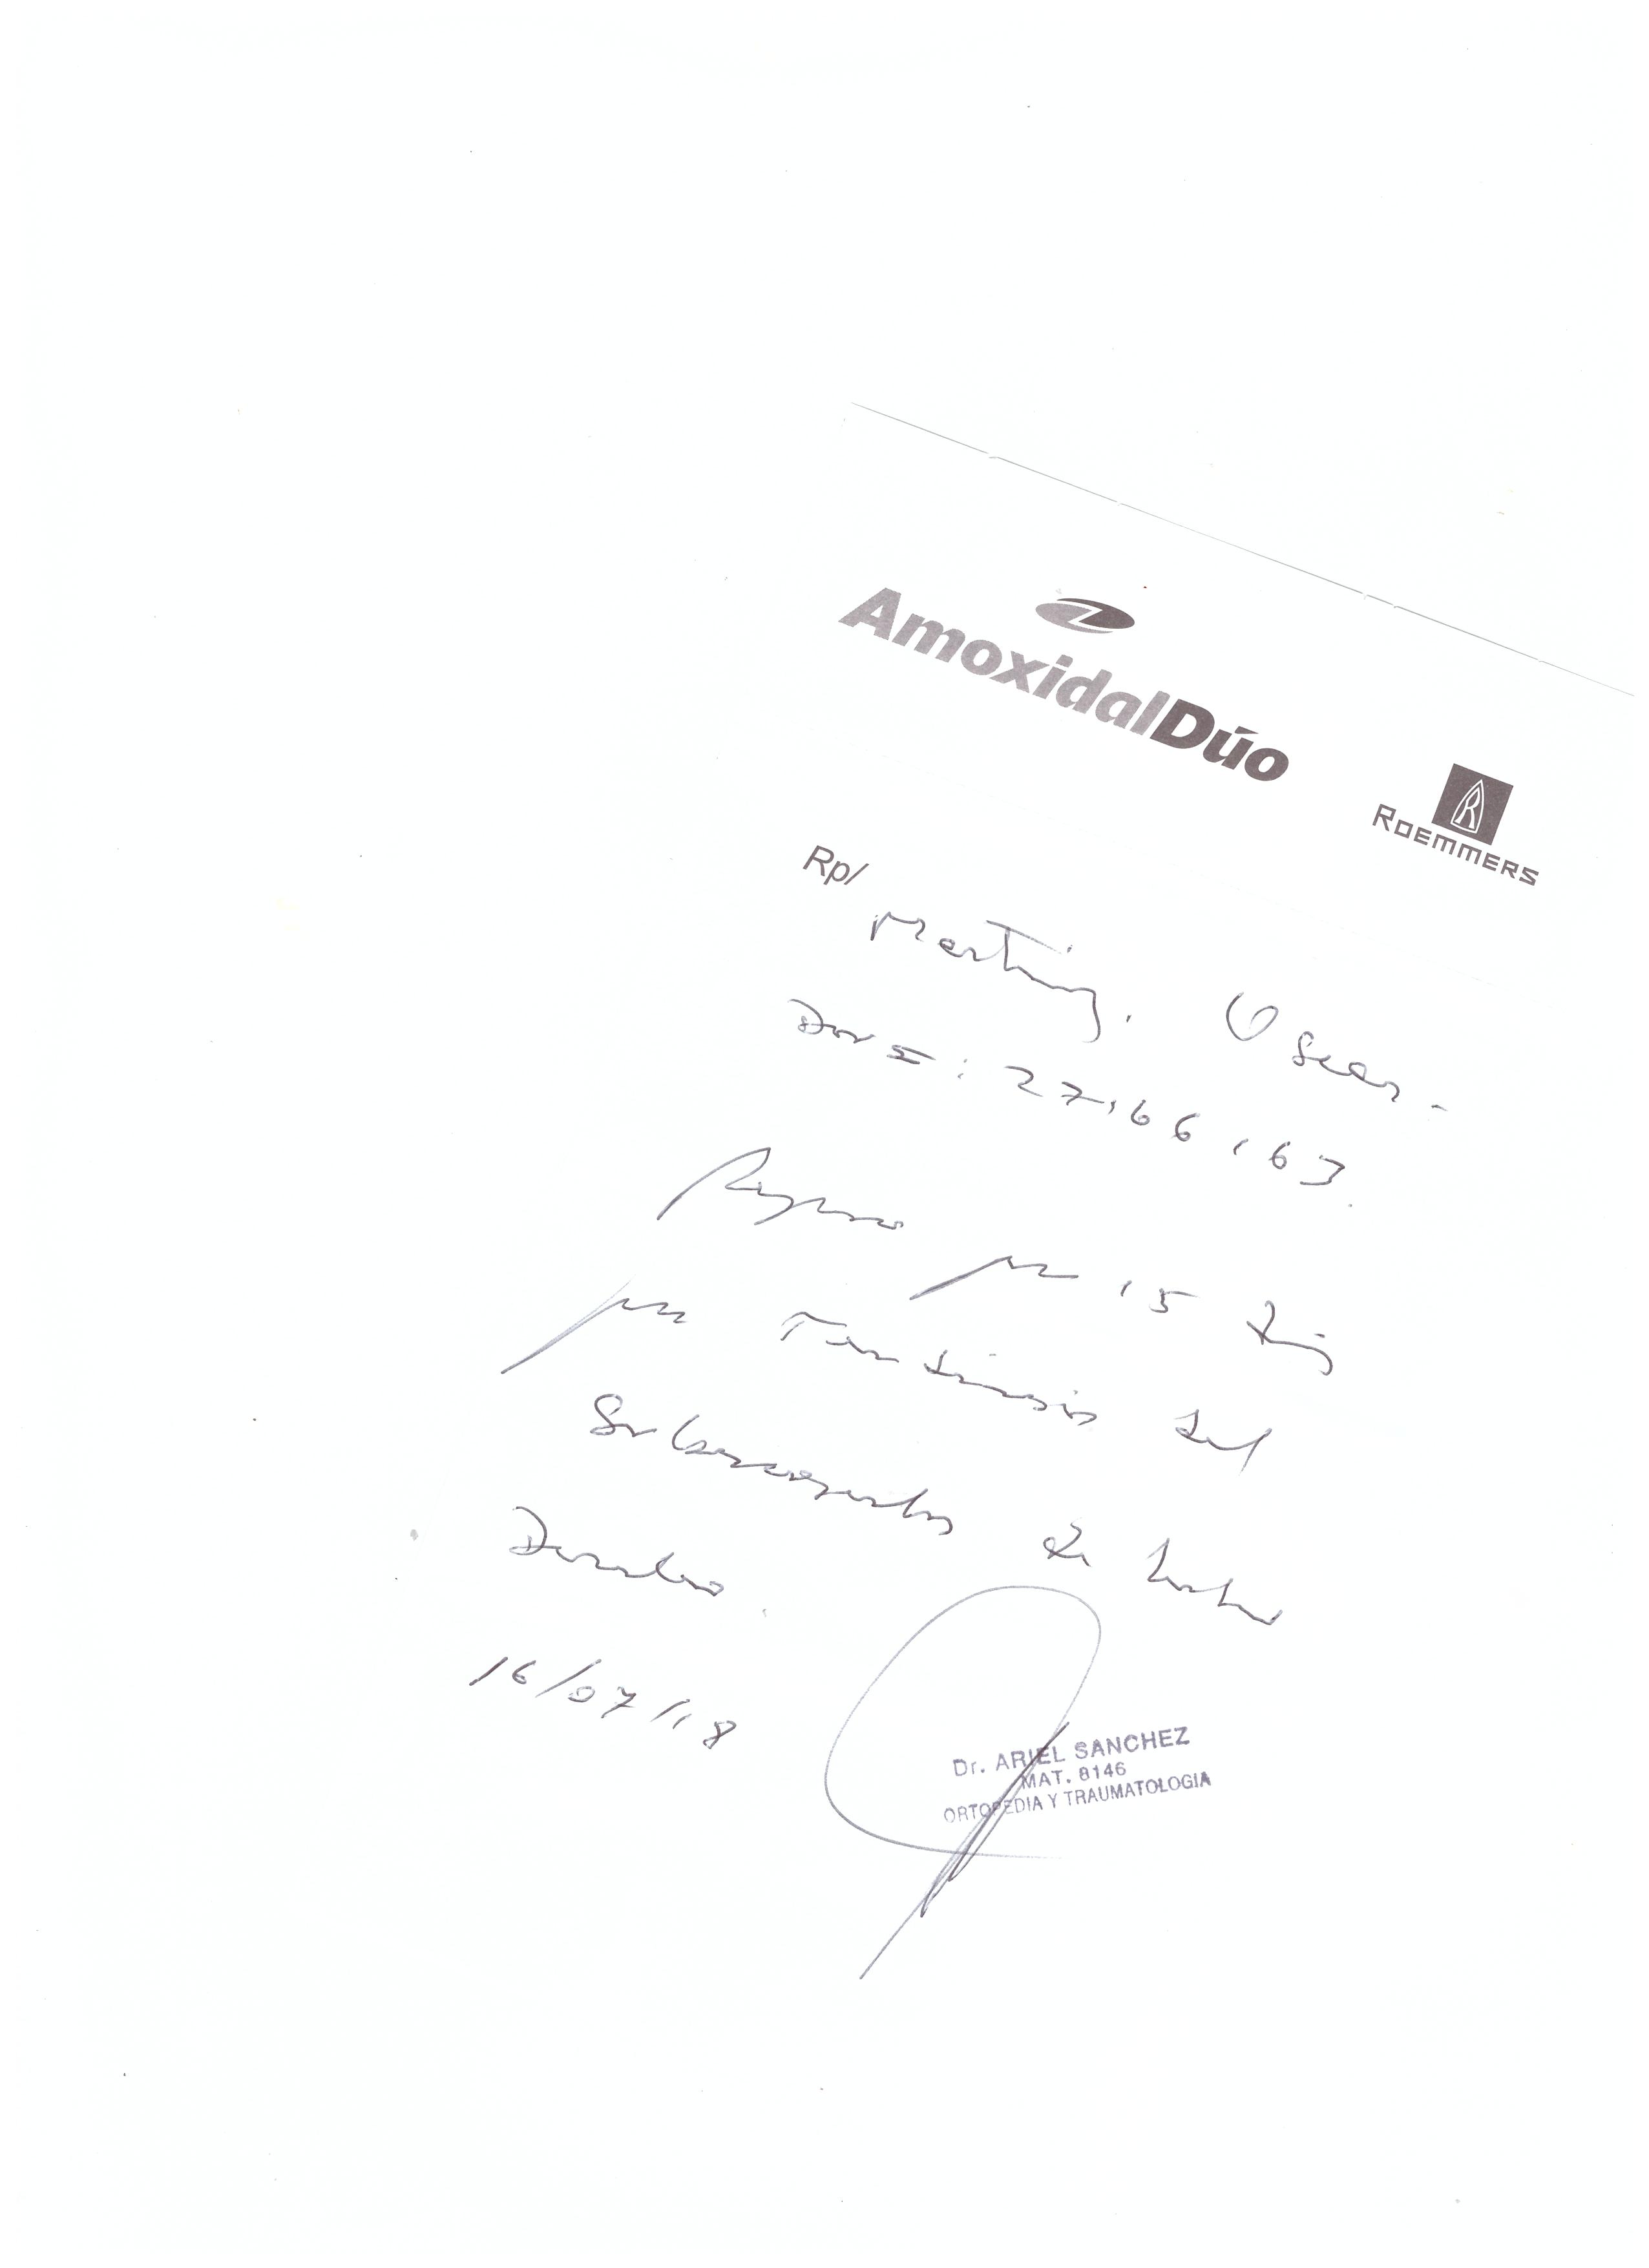 AmoxidalDúo
ROEMMERS
Rp/
Martinez. Oscar.
DNI: 27.66.63.
Reposo por 15 dias
por Tendinosis del
Subescapular de hombro
Derecho.
16/07/18
Dr. ARIEL SANCHEZ
MAT. 8146
ORTOPEDIA Y TRAUMATOLOGIA